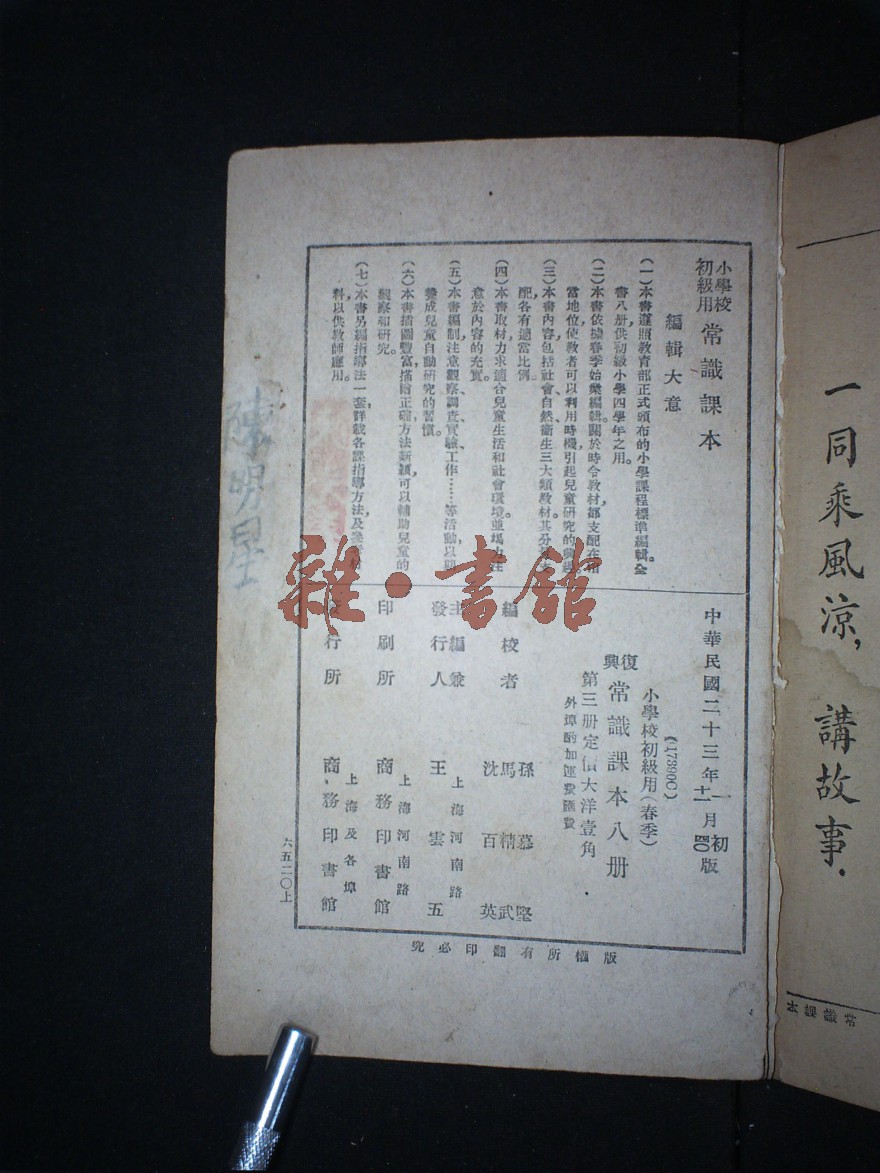 一同乘風涼,
講故事.
常識課本
小學校
初級用
常識課本
編輯大意
(一)本書遵照教育部正式頒布的小學課程標準編輯。全
書八册,供初級小學四學年之用。
(二)本書依據春季始業編輯。關於時令教材,都支配在相
當地位,使教者可以利用時機,引起兒童研究的興趣。
(三)本書內容包括社會、自然、衛生三大類教材,其分量支
配,各有適當比例。
(四)本書取材力求適合兒童生活和社會環境,並竭力注
意於內容的充實。
(五)本書編制注意觀察、調查、實驗、工作……等活動,以期
養成兒童自動研究的習慣。
(六)本書插圖豐富,描繪正確,方法新穎,可以輔助兒童的
觀察和研究。
(七)本書另編指導法一套,詳載各課指導方法,及參考材
料,以供教師應用。
中華民國二十三年
一月初版
小學校初級用(春季)
(17390C)
復興
常識課本八册
第三册定價大洋壹角
外埠酌加運費匯費
編校者
孫慕堅
馬精武
沈百英
主編兼
發行人
上海河南路
王雲五
印刷所
上海河南路
商務印書館
行所
上海及各埠
商務印書館
版權所有翻印必究
六五二〇上
陳明星
雜·書館